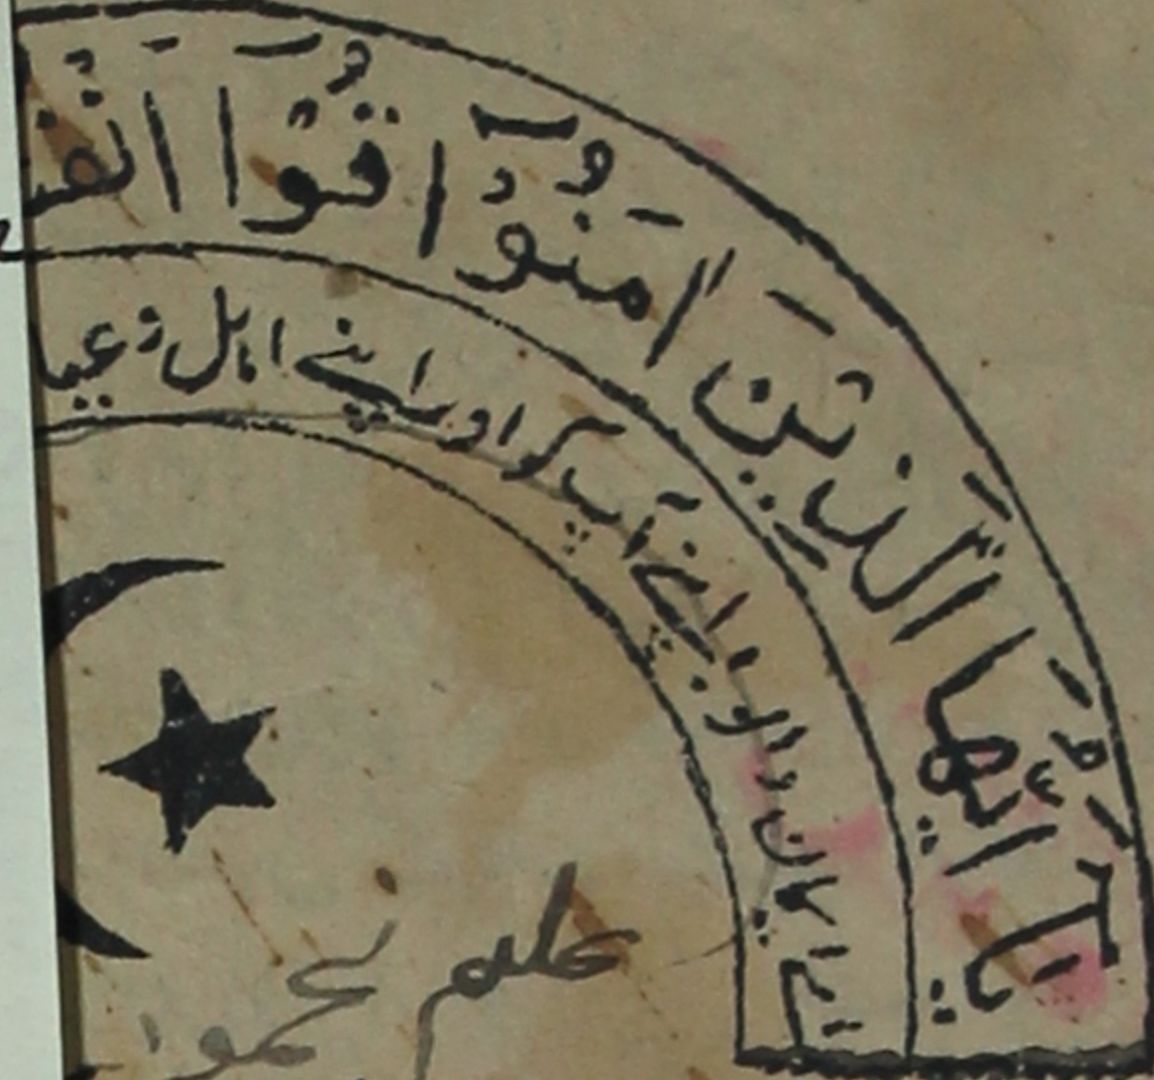 يَا أَيُّهَا الَّذِيْنَ اٰمَنُوْا قُوْا اَنْفُ
اے ایمان والو اپنے آپکو اور اپنے اہل و عیا
علم